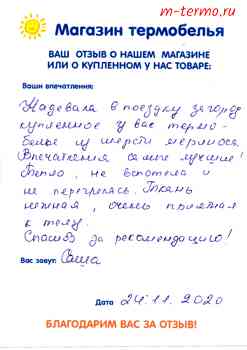 m-termo.ru
Магазин термобелья
ВАШ ОТЗЫВ О НАШЕМ МАГАЗИНЕ
ИЛИ О КУПЛЕННОМ У НАС ТОВАРЕ:
Ваши впечатления:
Надевала в поездку за город
купленное у вас термо-
белье из шерсти мериноса.
Впечатления самые лучшие!
Тепло, не вспотела и
не перегрелась. Ткань
нежная, очень приятная
к телу.
Спасибо за рекомендацию!
Вас зовут: Саша
Дата 24.11.2020
БЛАГОДАРИМ ВАС ЗА ОТЗЫВ!